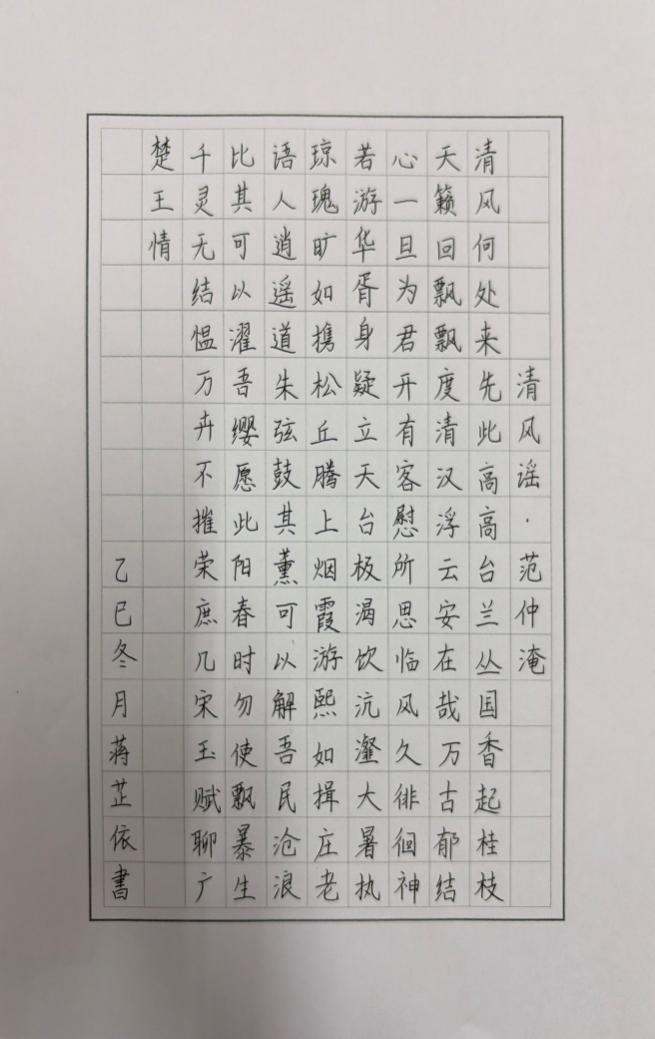 清风谣·范仲淹
清风何处来先此高高台兰丛国香起桂枝
天籁回飘飘度清汉浮云安在哉万古郁结
心一旦为君开有客慰所思临风久徘徊神
若游华胥身疑立天台板渴饮沆瀣大暑执
琼瑰旷如携松丘腾上烟霞游熙如揖庄老
语人逍遥道朱弦鼓其薰可以解吾民沧浪
比其可以濯吾缨愿此阳春时勿使飘暴生
千灵无结愠万卉不摧荣庶几宋玉赋聊广
楚王情
乙巳冬月蒋芷依書